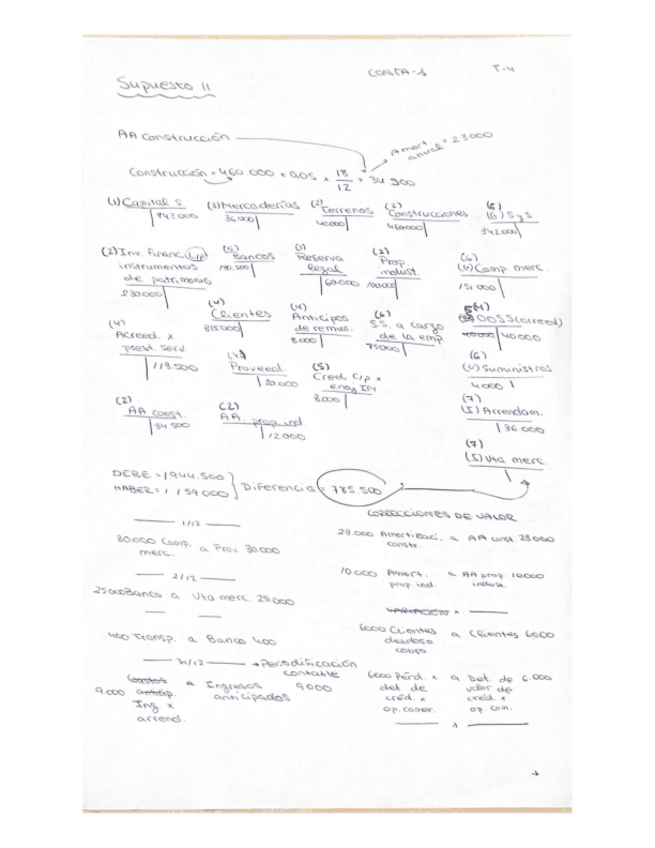 CONTA-1 T-4
Supuesto 11
AA construcción
Amort. anual = 23000
Construcción = 460 000 × 0,05 × 18/12 = 34 500
(1) Capital s (3) Mercaderías (2) Terrenos (2) Construcciones (6) (G) SyS
843.000 36000 40000 460000 342.000
(2) Inv. financ. L/p instrumentos de patrimonio (5) Bancos (1) Reserva legal (2) Prop indust. (6) (G) Comp merc.
230.000 130.500 60.000 100.000 151 000
(4) Clientes (4) Anticipos de remun. (6) SS. a cargo de la emp. (4) OOSS (acreed)
315000 8.000 75000 40000 40000
(4) Acreed. x prest. serv. (4) Proveed. (5) Cred c/p x enaj IM (6) (G) Suministros
113.500 20.000 8.000 4000
(2) AA const. (2) AA prop. ind. (7) (I) Arrendam.
34 500 12 000 36 000
(7) (I) Vta merc.
DEBE = 1944.500
HABER = 1 159.000 } Diferencia = 785.500
1/12
30.000 Comp. merc. a Prov. 30 000
2/12
25000 Banco a Vta merc. 25.000
400 Transp. a Banco 400
31/12 → Periodificación contable
9.000 Ing x arrend. a Ingresos anticipados 9000
CORRECCIONES DE VALOR
23.000 Amortizaci. constr. a AA const. 23000
10.000 Amort. prop ind. a AA prop. indust. 10000
6000 Clientes dudoso cobro a Clientes 6000
6000 Pérd. x det de créd. x op. comer. a Det. de valor de créd. x op. com. 6.000